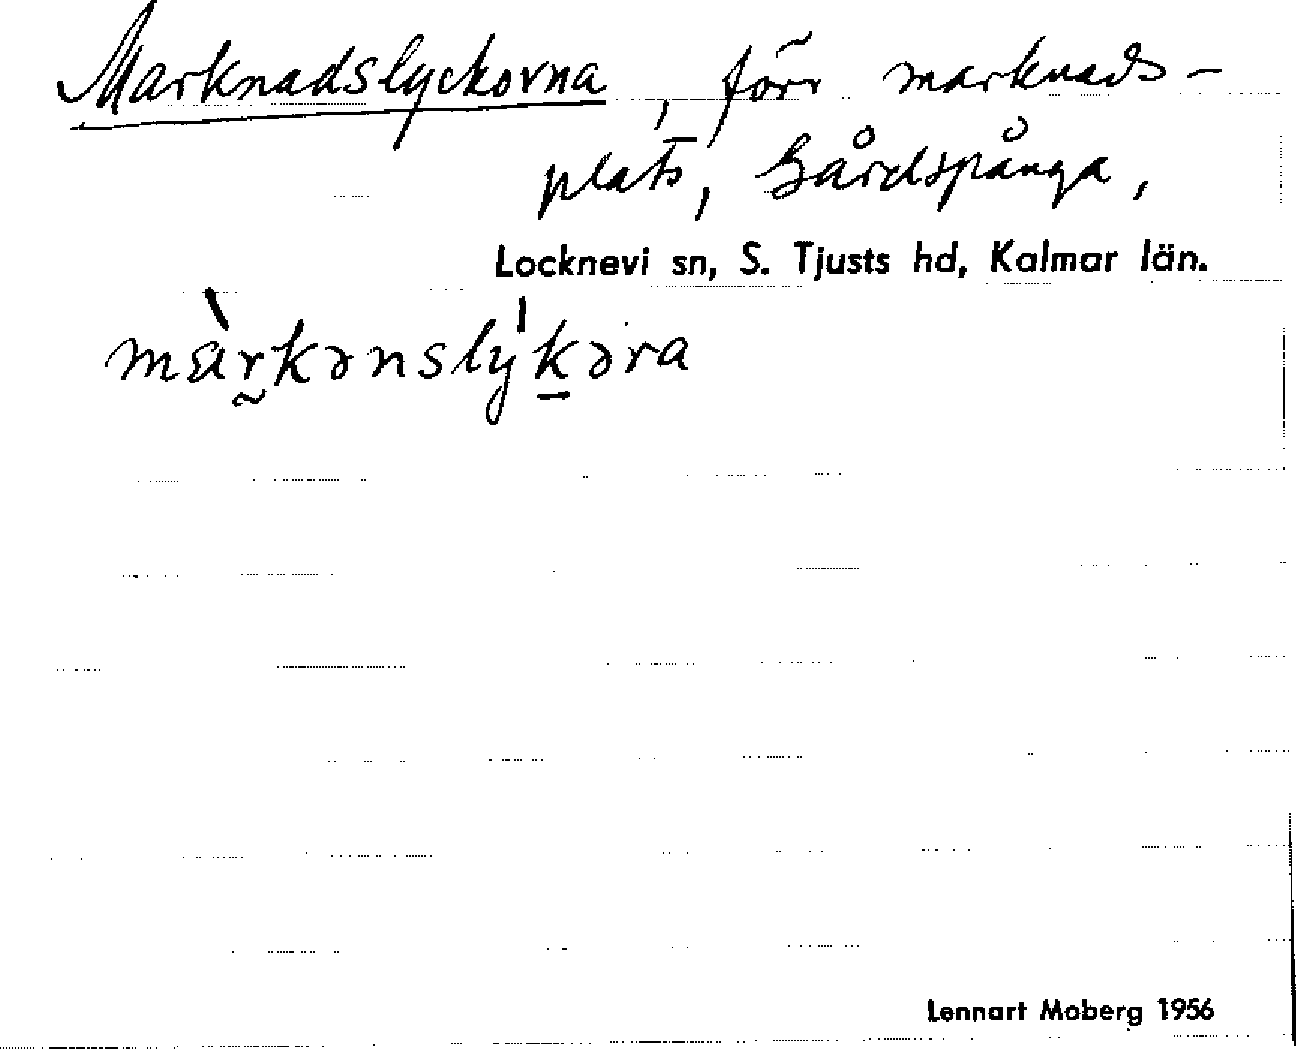 Marknadslyckorna, förr marknads-
plats, Gårdspånga,
Locknevi sn, S. Tjusts hd, Kalmar län.
màr̰kənslýk̠əra
Lennart Moberg 1956